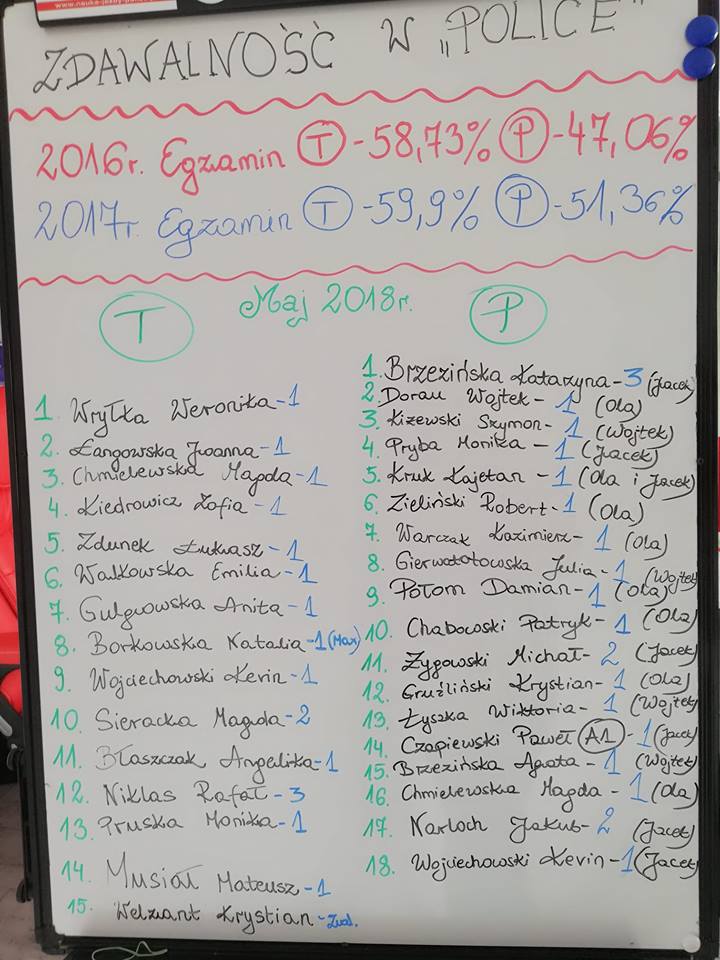 ZDAWALNOŚĆ W „POLICE"
2016r. Egzamin T -58,73% P -47,06%
2017r Egzamin T -59,9% P -51,36%
Maj 2018r.
T
1. Wryłka Weronika -1
2. Łangowska Joanna -1
3. Chmielewska Magda -1
4. Kiedrowicz Zofia -1
5. Zdunek Łukasz -1
6. Walkowska Emilia -1
7. Anita -1
8. Borkowska Natalia -1 (Max)
9. Wojciechowski Kevin -1
10. Sieracka Magda -2
11. Błaszczak Angelika -1
12. Niklas Rafał -3
13. Pruska Monika -1
14. Musiał Mateusz -1
15. Welziant Krystian - Zwol.
P
1. Brzezińska Katarzyna -3 (Jacek)
2. Dorau Wojtek - 1 (Ola)
3. Kizewski Szymon - 1 (Wojtek)
4. Pryba Monika - 1 (Jacek)
5. Kruk Kajetan - 1 (Ola i Jacek)
6. Zieliński Robert -1 (Ola)
7. Warczak Kazimierz - 1 (Ola)
8. Julia - 1 (Wojtek)
9. Połom Damian - 1 (Ola)
10. Chabowski Patryk - 1 (Ola)
11. Żygowski Michał - 2 (Jacek)
12. Gruźliński Krystian - 1 (Ola)
13. Łyszka Wiktoria - 1 (Wojtek)
14. Czapiewski Paweł A1 - 1 (Jacek)
15. Brzezińska Agata - 1 (Wojtek)
16. Chmielewska Magda - 1 (Ola)
17. Narloch Jakub - 2 (Jacek)
18. Wojciechowski Kevin -1 (Jacek)